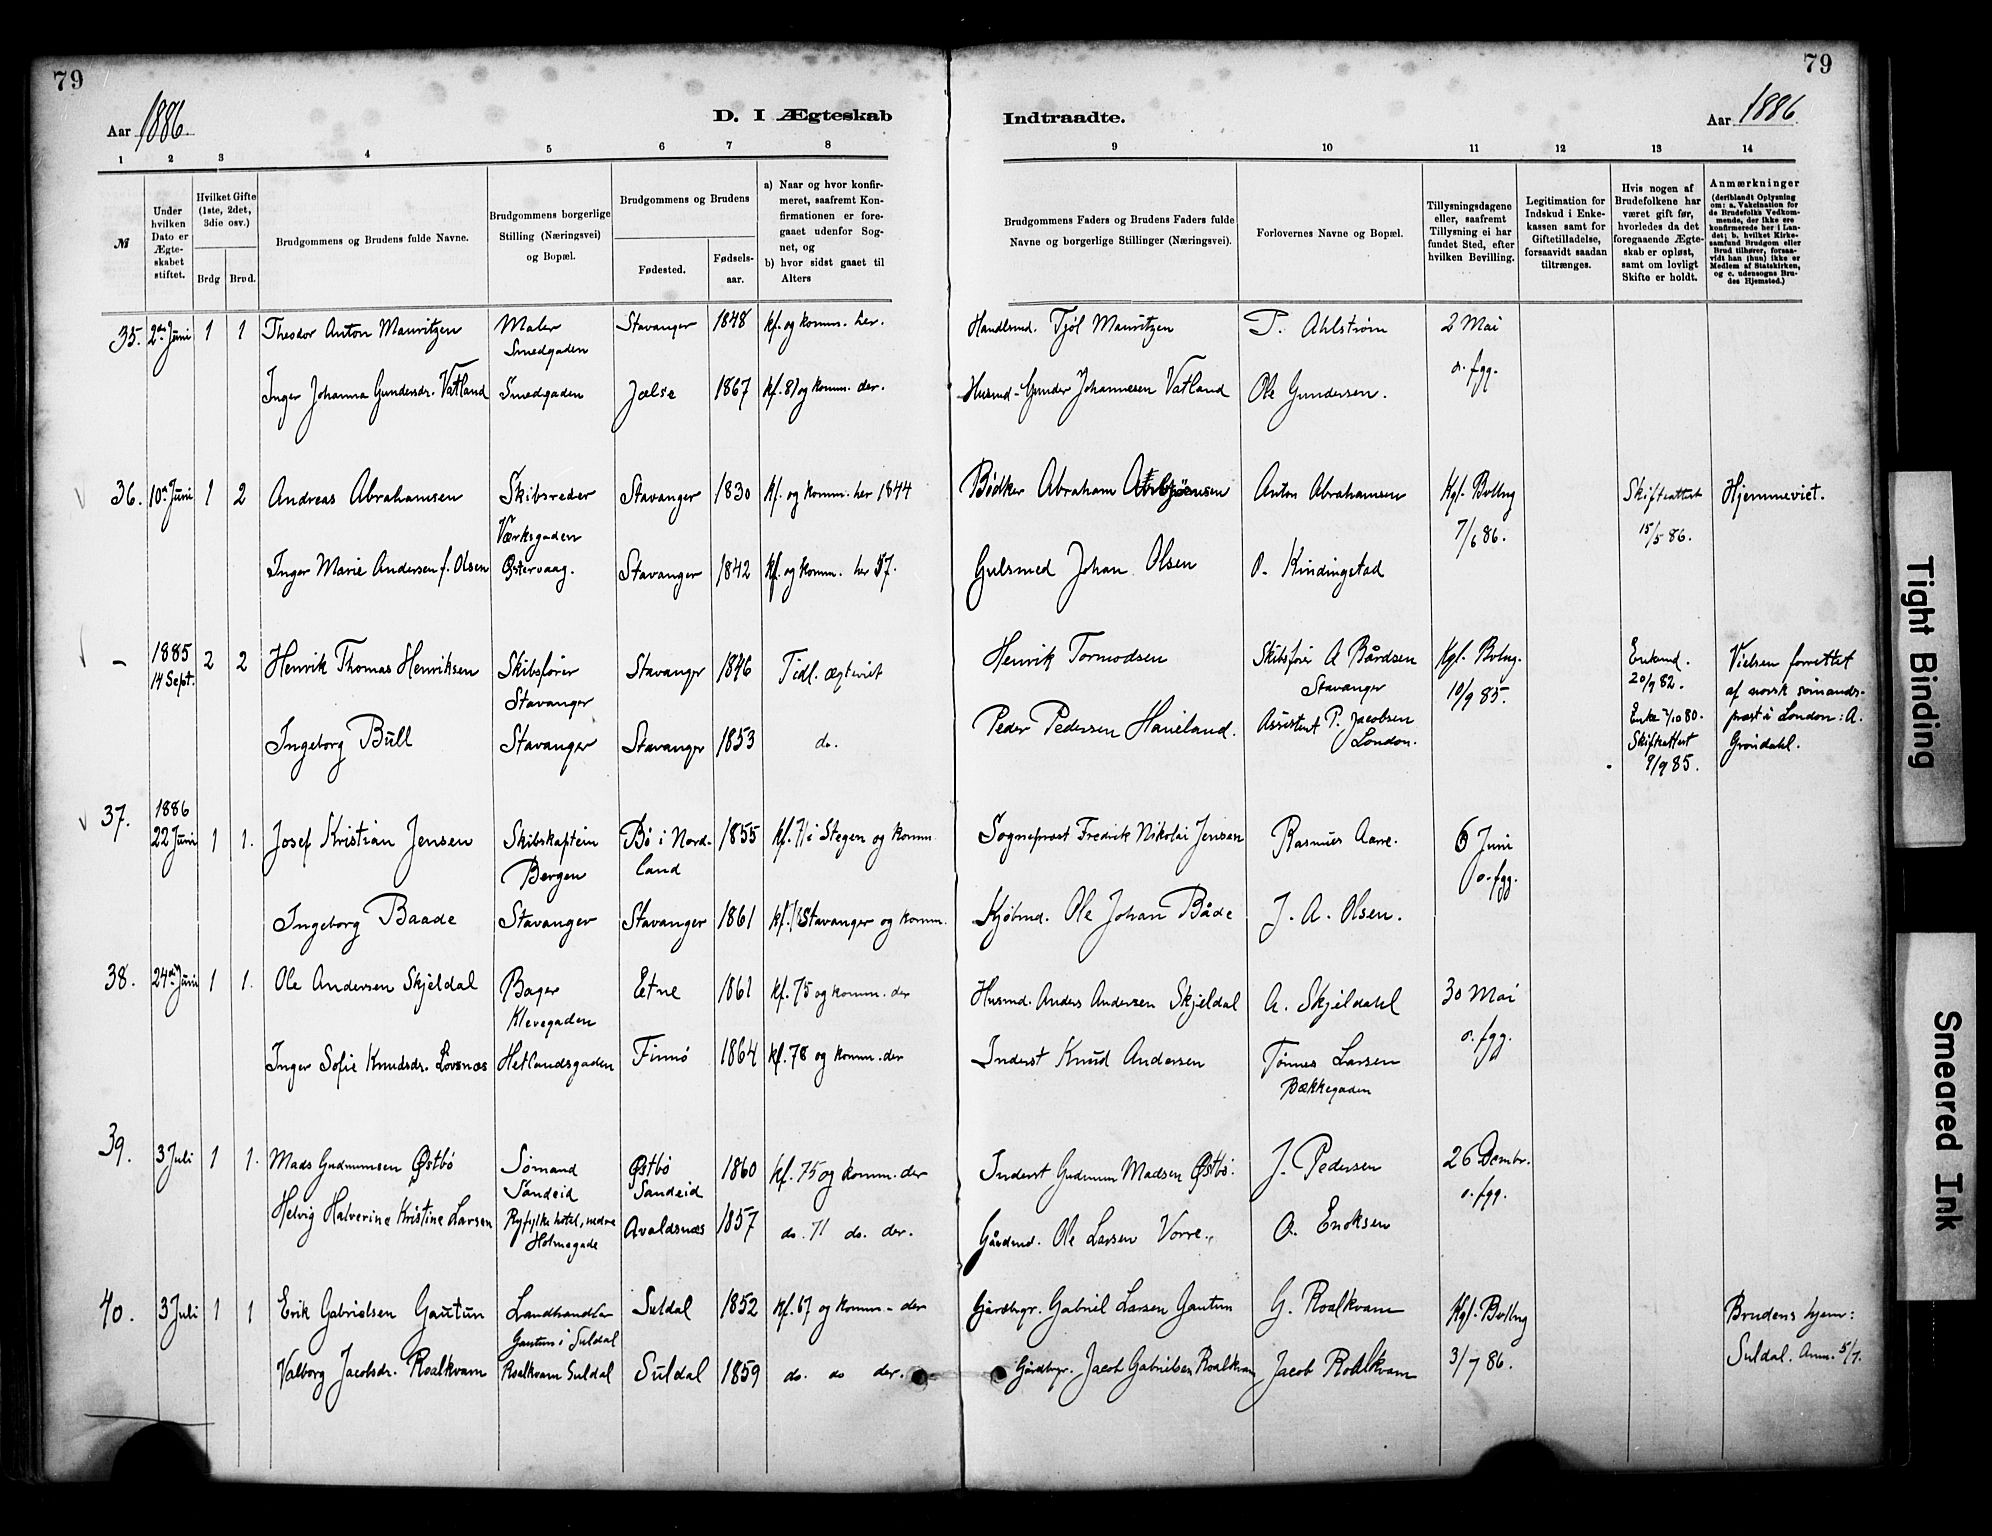 79
79
Aar 1886.
D. I Ægteskab
Indtraadte.
Aar 1886
1 2 3 4 5 6 7 8
9 10 11 12 13 14
№
Under hvilken Dato er Ægte-skabet stiftet.
Hvilket Gifte (1ste, 2det, 3die osv.)
Brdg Brud.
Brudgommens og Brudens fulde Navne.
Brudgommens borgerlige Stilling (Næringsvei) og Bopæl.
Brudgommens og Brudens
Fødested.
Fødsels-aar.
a) Naar og hvor konfir-meret, saafremt Kon-firmationen er fore-gaaet udenfor Sog-net, og
b) hvor sidst gaaet til Alters
Brudgommens Faders og Brudens Faders fulde Navne og borgerlige Stillinger (Næringsvei).
Forlovernes Navne og Bopæl.
Tillysningsdagene eller, saafremt Tillysning ei har fundet Sted, efter hvilken Bevilling.
Legitimation for Indskud i Enke-kassen samt for Giftetilladelse, forsaavidt saadan tiltrænges.
Hvis nogen af Brudefolkene har været gift før, hvorledes da det foregaaende Ægte-skab er opløst, samt om lovligt Skifte er holdt.
Anmærkninger (deriblandt Oplysning om: a. Vakcination for de Brudefolks Vedkom-mende, der ikke ere konfirmerede her i Lan-det; b. hvilket Kirke-samfund Brudgom eller Brud tilhører, forsaa-vidt han (hun) ikke er Medlem af Statskirken, og c. udensogns Bru-des Hjemsted.)
35. 2den Juni 1 1 Theodor Anton Mauritzen Maler Stavanger 1848 kf. og komm. her. Handlsmd. Tjøl Mauritzen P. Ahlstrøm 2 Mai
Smedgaden o. fgg.
Inger Johanna Gundersdr. Vatland Smedgaden Jælse 1867 kf. 81 og komm. der. Husmd. Gunder Johannesen Vatland Ole Gundersen.
36. 10de Juni 1 2 Andreas Abrahamsen Skibsreder Stavanger 1830 kf. og komm. her 1844 Bødker Abraham Anton Abrahamsen Kgl. Bvllng Skifteattest Hjemmeviet.
Værksgaden 7/6 86. 15/5 86.
Inger Marie Andersen f. Olsen Østervaag. Stavanger 1842 kf. og komm. her 57. Gulsmed Johan Olsen O. Kindingstad
– 1885 14 Sept. 2 2 Henrik Thomas Henriksen Skibsfører Stavanger 1846 Tidl. ægteviet Henrik Tormodsen Skibsfører A Bårdsen Kgl. Bvlng. Enkemd. Vielsen forrettet
Stavanger Stavanger 10/9 85. 20/9 82. af norsk sømands-
Ingeborg Bull Stavanger Stavanger 1853 do. Peder Pedersen Haneland. Assistent P. Jacobsen Enke 7/10 80. præst i London: A.
London. Skifteattest Grøndahl.
9/9 85.
37. 1886 22 Juni 1 1. Josef Kristian Jensen Skibskaptein Bø i Nord- 1855 kf. 71 i Stegen og komm. Sogneprest Fredrik Nikolai Jensen Rasmus Aarre. 6 Juni
Bergen land o. fgg.
Ingeborg Baade Stavanger Stavanger 1861 kf. Stavanger og komm. Kjøbmd. Ole Johan Både J. A. Olsen.
38. 24de Juni 1 1. Ole Andersen Skjeldal Bager Etne 1861 kf. 75 og komm. der Husmd. Anders Andersen Skjeldal A. Skjeldahl 30 Mai
Klevegaden o. fgg.
Inger Sofie Knudsdr. Løvsnæs Hetlandsgaden Finnø 1864 kf. 78 og komm. der Inderst Knud Andersen Tønnes Larsen
Bækkegaden
39. 3 Juli 1 1. Mads Gudmunsen Østbø Sømand Østbø 1860 kf. 75 og komm. der Inderst Gudmun Madsen Østbø. J. Pedersen 26 Dcmbr.
Sandeid Sandeid o. fgg.
Helvig Halverine Kristine Larsen Ryfylke hotel, nedre Avaldsnæs 1857 do. 71 do. der. Gårdmd. Ole Larsen Vorre. O. Enoksen
Holmegade
40. 3 Juli 1 1 Erik Gabrielsen Gautun Landhandler Suldal 1852 kf. 67 og komm. der Gårdbrgr. Gabriel Larsen Gautun G. Roalkvam Kgl. Bvllng Brudens hjem:
Gautun i Suldal 3/7 86. Suldal. Anm. 5/7.
Valborg Jacobsdr. Roalkvam Roalkvam Suldal Suldal 1859 do. do der. Gårdbrgr. Jacob Gabrielsen Roalkvam Jacob Roalkvam
Tight Binding
Smeared Ink